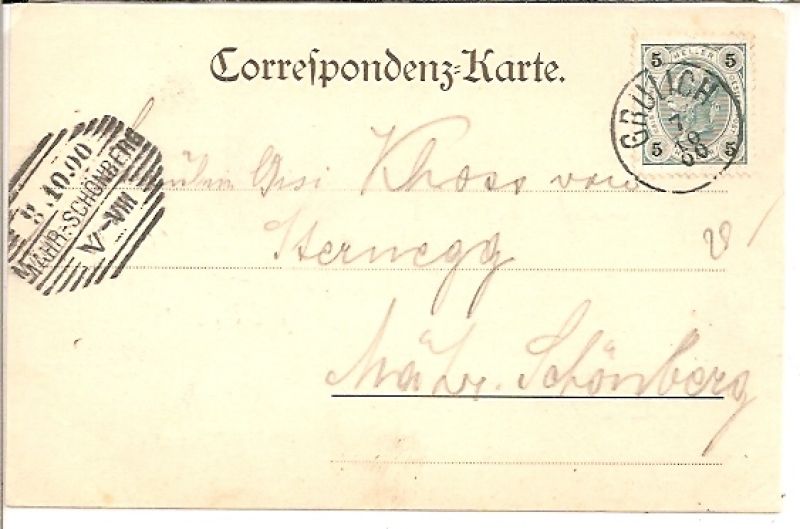 Correspondenz-Karte.
5 HELLER 5
5 5
GRULICH
7
10
00
8.10.00
MÄHR.-SCHÖNBERG
V-VIII
Fräulein Gusi Khoss von
Sternegg
Mähr. Schönberg